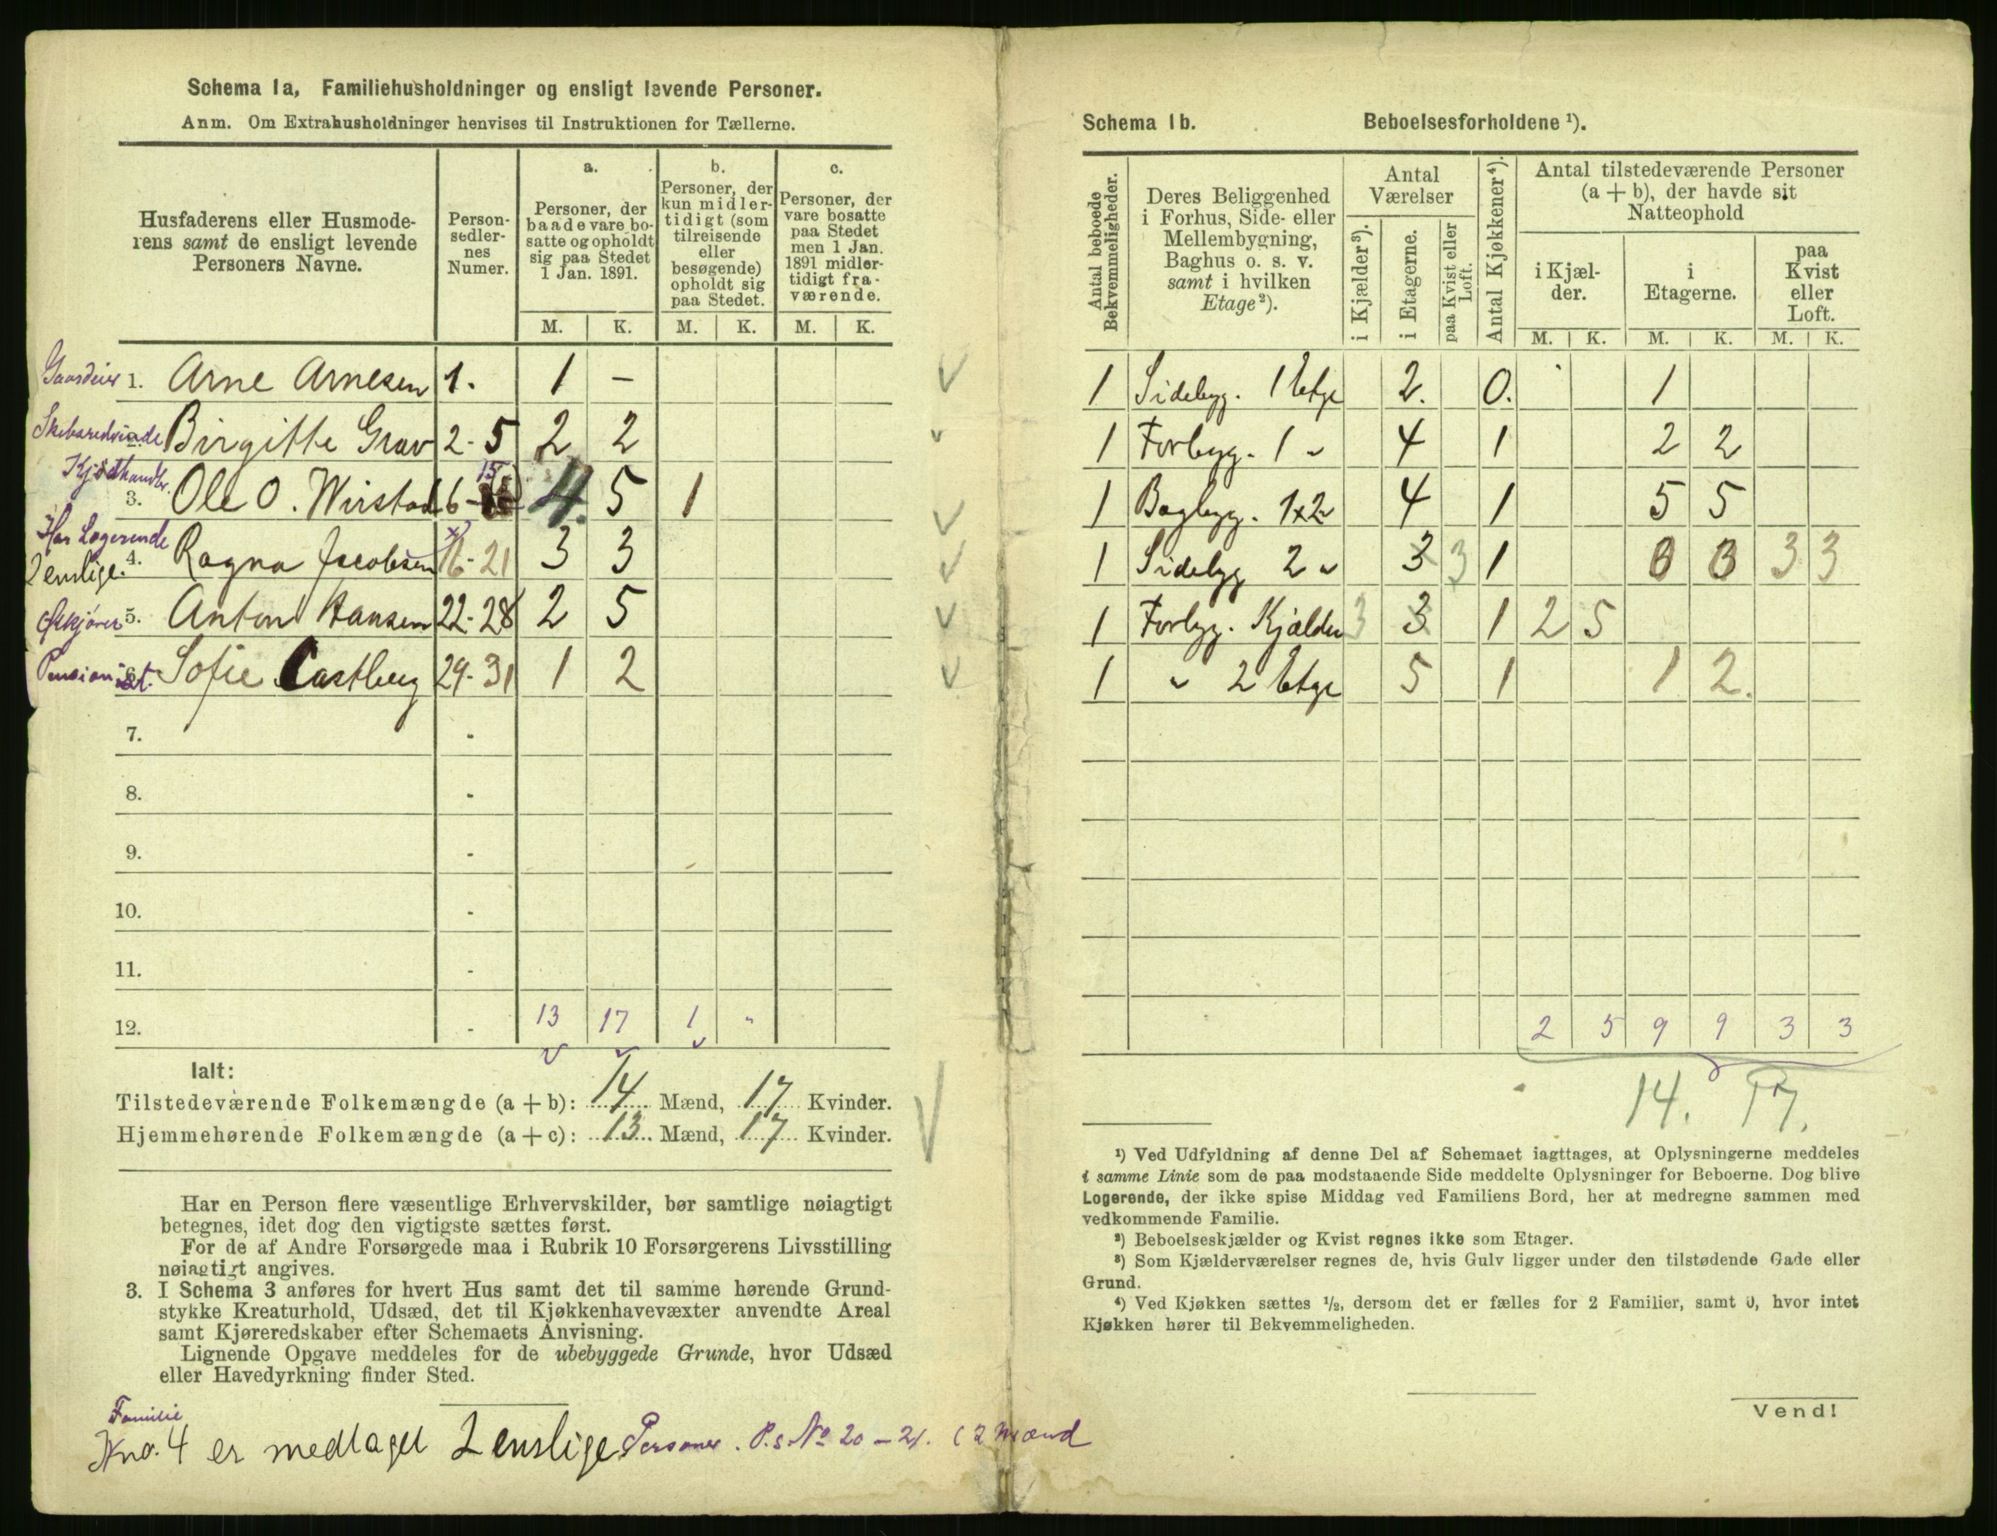 Schema 1a, Familiehusholdninger og ensligt levende Personer.
Anm. Om Extrahusholdninger henvises til Instruktionen for Tællerne.
Husfaderens eller Husmode-
rens samt de ensligt levende
Personers Navne.
Person-
sedler-
nes
Numer.
a.
Personer, der
baade vare bo-
satte og opholdt
sig paa Stedet
1 Jan. 1891.
b.
Personer, der
kun midler-
tidigt (som
tilreisende
eller
besøgende)
opholdt sig
paa Stedet.
c.
Personer, der
vare bosatte
paa Stedet
men 1 Jan.
1891 midler-
tidigt fra-
værende.
M. K. M. K. M. K.
Gaardeier 1. Arne Arnesen 1. 1 –
2. Birgitte Grav 2-5 2 2
Kjødhandler. 3. Ole O. Wirstad 6-15 4. 5 1
Har Logerende
2 enslige. 4. Ragna Jacobsen 16-21 3 3
5. Anton Hansen 22-28 2 5
Pensionist. 6. Sofie Castberg 29-31 1 2
7. -
8. -
9. -
10. -
11. -
12. - 13 17 1 "
Ialt:
Tilstedeværende Folkemængde (a + b): 14 Mænd, 17 Kvinder.
Hjemmehørende Folkemængde (a + c): 13 Mænd, 17 Kvinder.
Har en Person flere væsentlige Erhvervskilder, bør samtlige nøiagtigt
betegnes, idet dog den vigtigste sættes først.
For de af Andre Forsørgede maa i Rubrik 10 Forsørgerens Livsstilling
nøiagtigt angives.
3. I Schema 3 anføres for hvert Hus samt det til samme hørende Grund-
stykke Kreaturhold, Udsæd, det til Kjøkkenhavevæxter anvendte Areal
samt Kjøreredskaber efter Schemaets Anvisning.
Lignende Opgave meddeles for de ubebyggede Grunde, hvor Udsæd
eller Havedyrkning finder Sted.
Familie
No. 4 er medtaget 2 enslige Personer. P.s. No 20-21. (2 Mænd
Schema 1b. Beboelsesforholdene ¹).
Antal beboede
Bekvemmeligheder.
Deres Beliggenhed
i Forhus, Side- eller
Mellembygning,
Baghus o. s. v.
samt i hvilken
Etage ²).
Antal
Værelser
i Kjælder ³).
i Etagerne.
paa Kvist eller
Loft.
Antal Kjøkkener ⁴).
Antal tilstedeværende Personer
(a + b), der havde sit
Natteophold
i Kjæl-
der.
i
Etagerne.
paa
Kvist
eller
Loft.
M. K. M. K. M. K.
1 Sidebyg. 1 Etge 2. 0. 1
1 Forbyg. 1 " 4 1 2 2
1 Bagbyg. 1x2 " 4 1 5 5
1 Sidebyg 2 " 3 3 1 0 0 3 3
1 Forbyg. Kjælder 3 3 1 2 5
1 " 2 Etge 5 1 1 2.
2 5 9 9 3 3
14. 17.
¹) Ved Udfyldning af denne Del af Schemaet iagttages, at Oplysningerne meddeles
i samme Linie som de paa modstaaende Side meddelte Oplysninger for Beboerne. Dog blive
Logerende, der ikke spise Middag ved Familiens Bord, her at medregne sammen med
vedkommende Familie.
²) Beboelseskjælder og Kvist regnes ikke som Etager.
³) Som Kjælderværelser regnes de, hvis Gulv ligger under den tilstødende Gade eller
Grund.
⁴) Ved Kjøkken sættes ½, dersom det er fælles for 2 Familier, samt 0, hvor intet
Kjøkken hører til Bekvemmeligheden.
Vend!